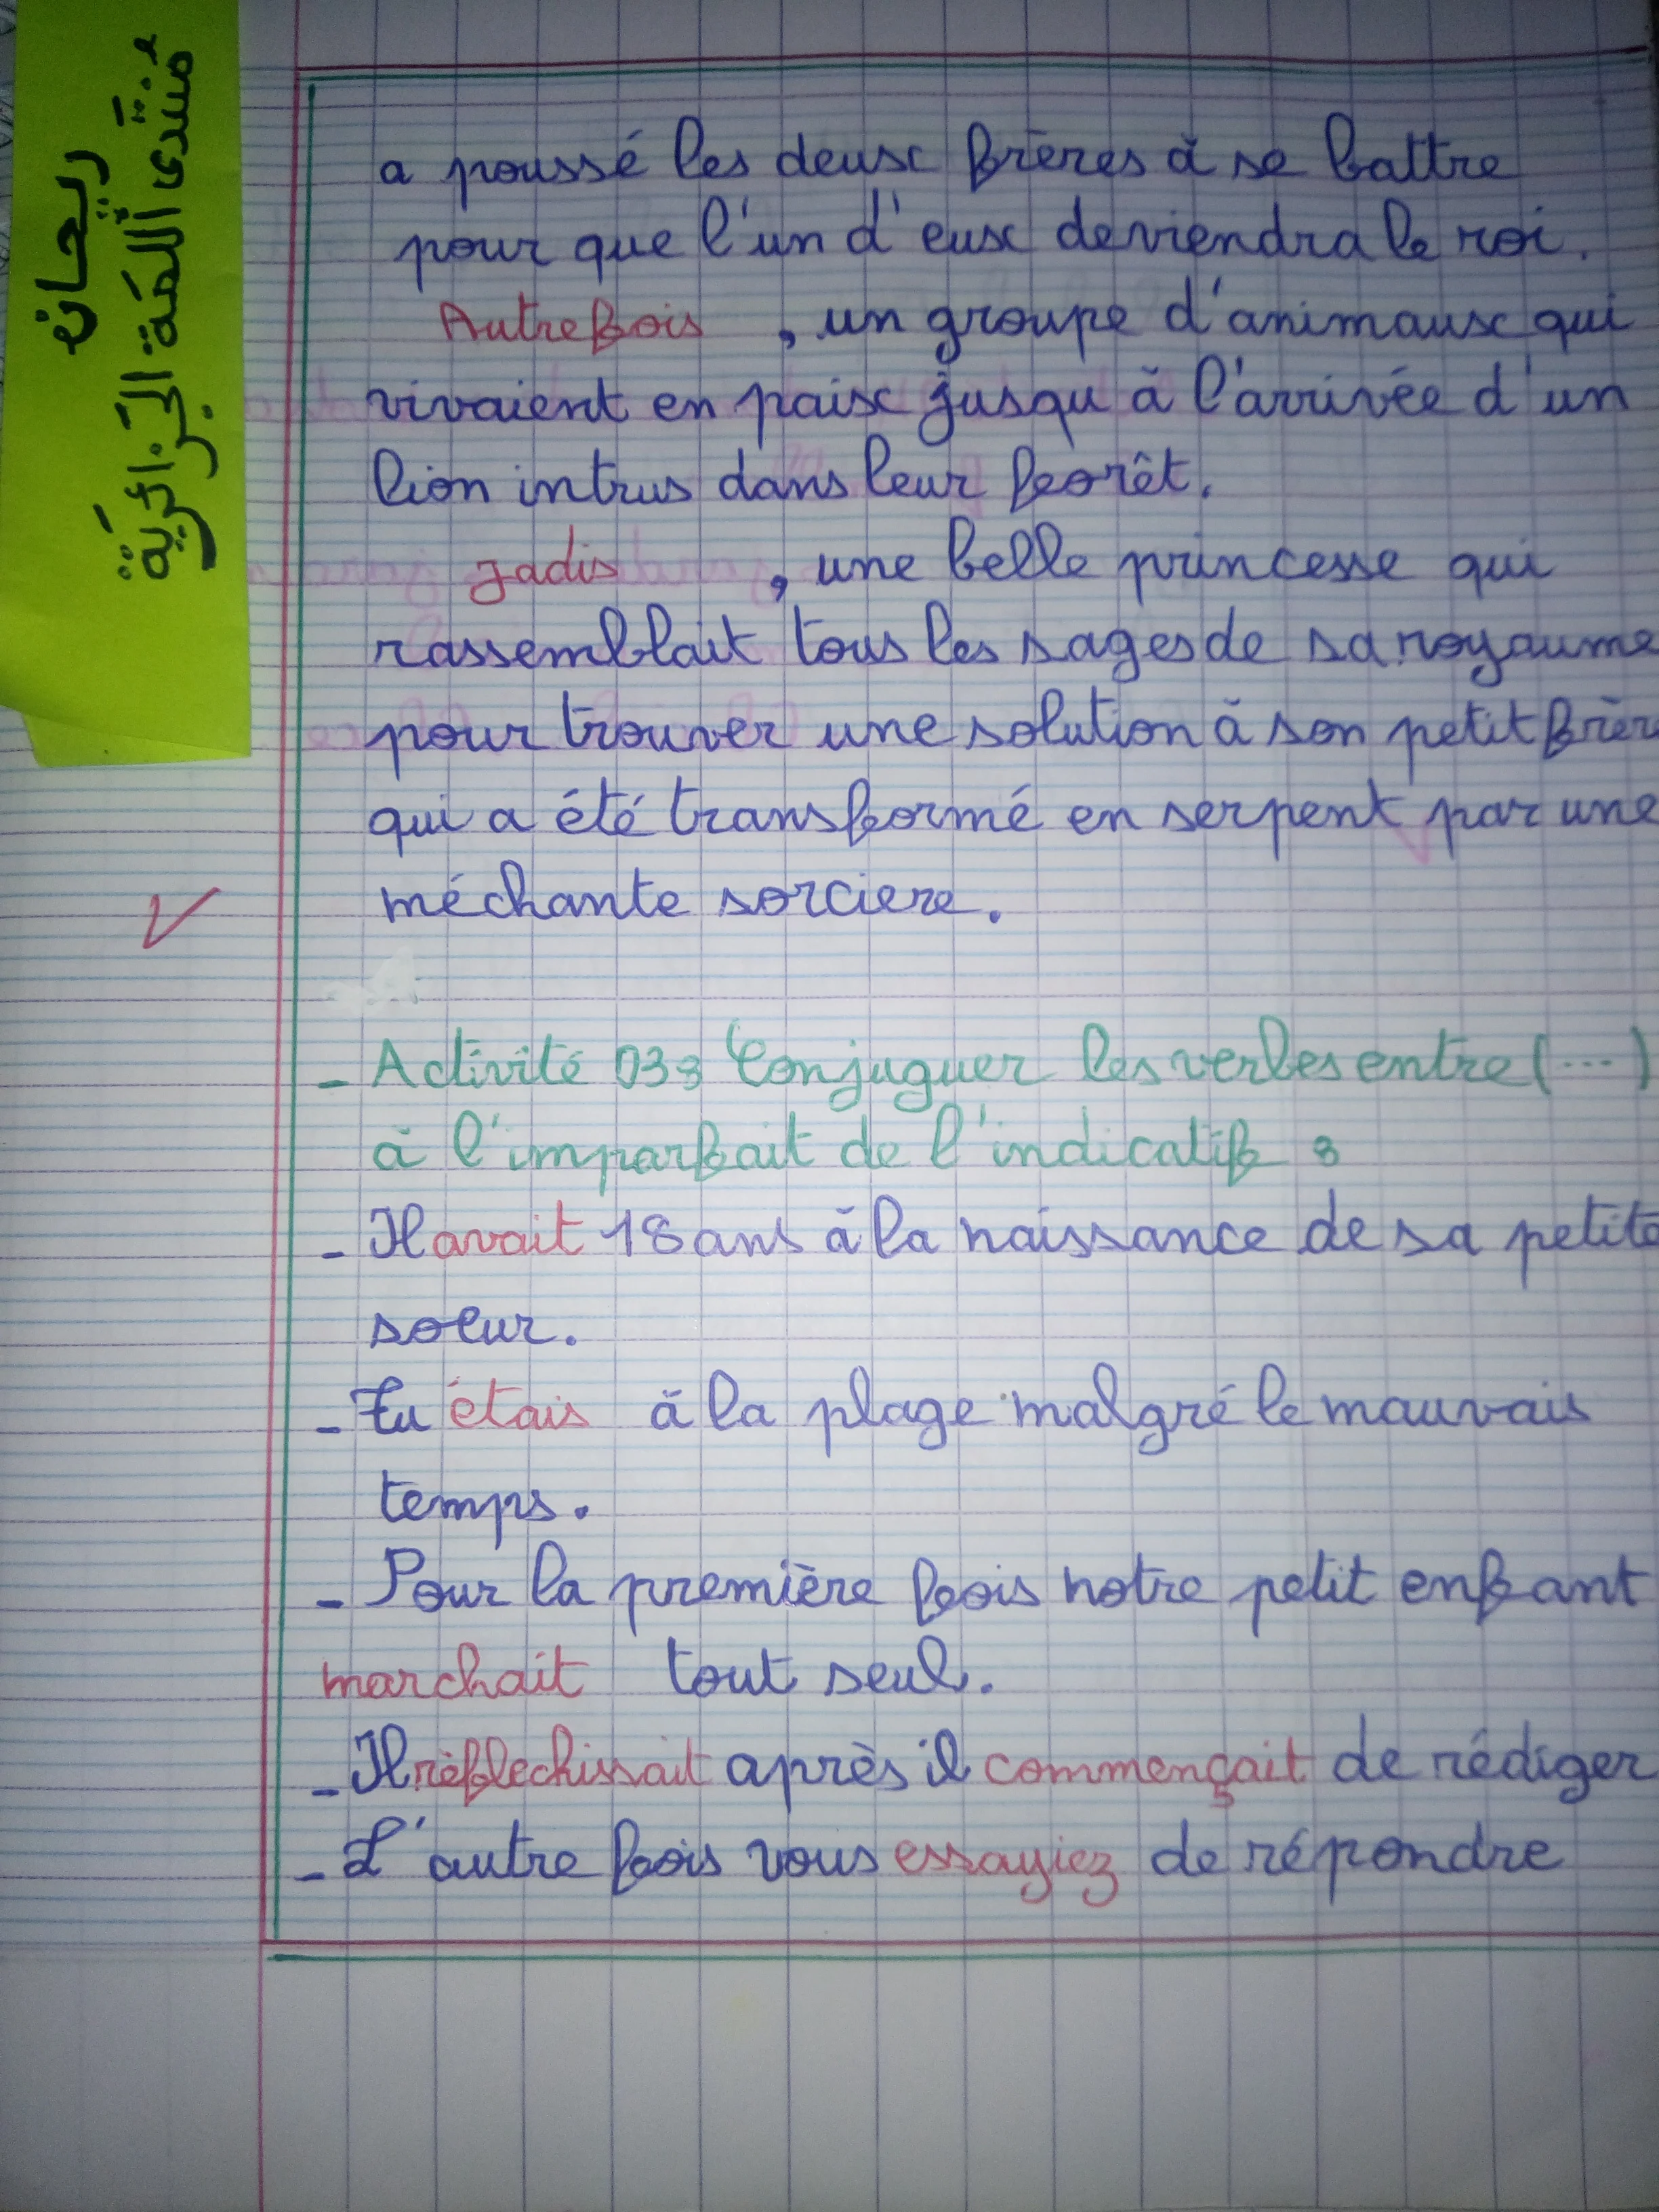 ريحان
منتدى اللمة الجزائرية
a poussé les deux frères à se battre
pour que l'un d'eux deviendra le roi.
Autrefois , un groupe d'animaux qui
vivaient en paix jusqu à l'arrivée d'un
lion intrus dans leur forêt.
jadis , une belle princesse qui
rassemblait tous les sages de sa royaume
pour trouver une solution à son petit frèr
qui a été transformé en serpent par une
méchante sorciere.
- Activité 03: Conjuguer les verbes entre (...)
à l'imparfait de l'indicatif :
- Il avait 18 ans à la naissance de sa petite
soeur.
- Tu étais à la plage malgré le mauvais
temps.
- Pour la première fois notre petit enfant
marchait tout seul.
- Il réflechissait après il commençait de rédiger
- L'autre fois vous essayiez de répondre